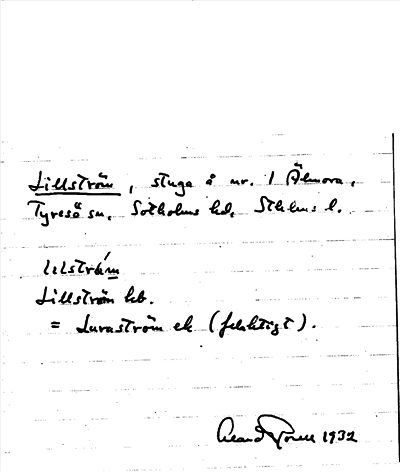 Lillström, stuga å nr. 1 Älmora,
Tyresö sn, Sotholms hd, Sthlms l.
lilström
Lillström kb.
= Luraström ek (felaktigt).
1932